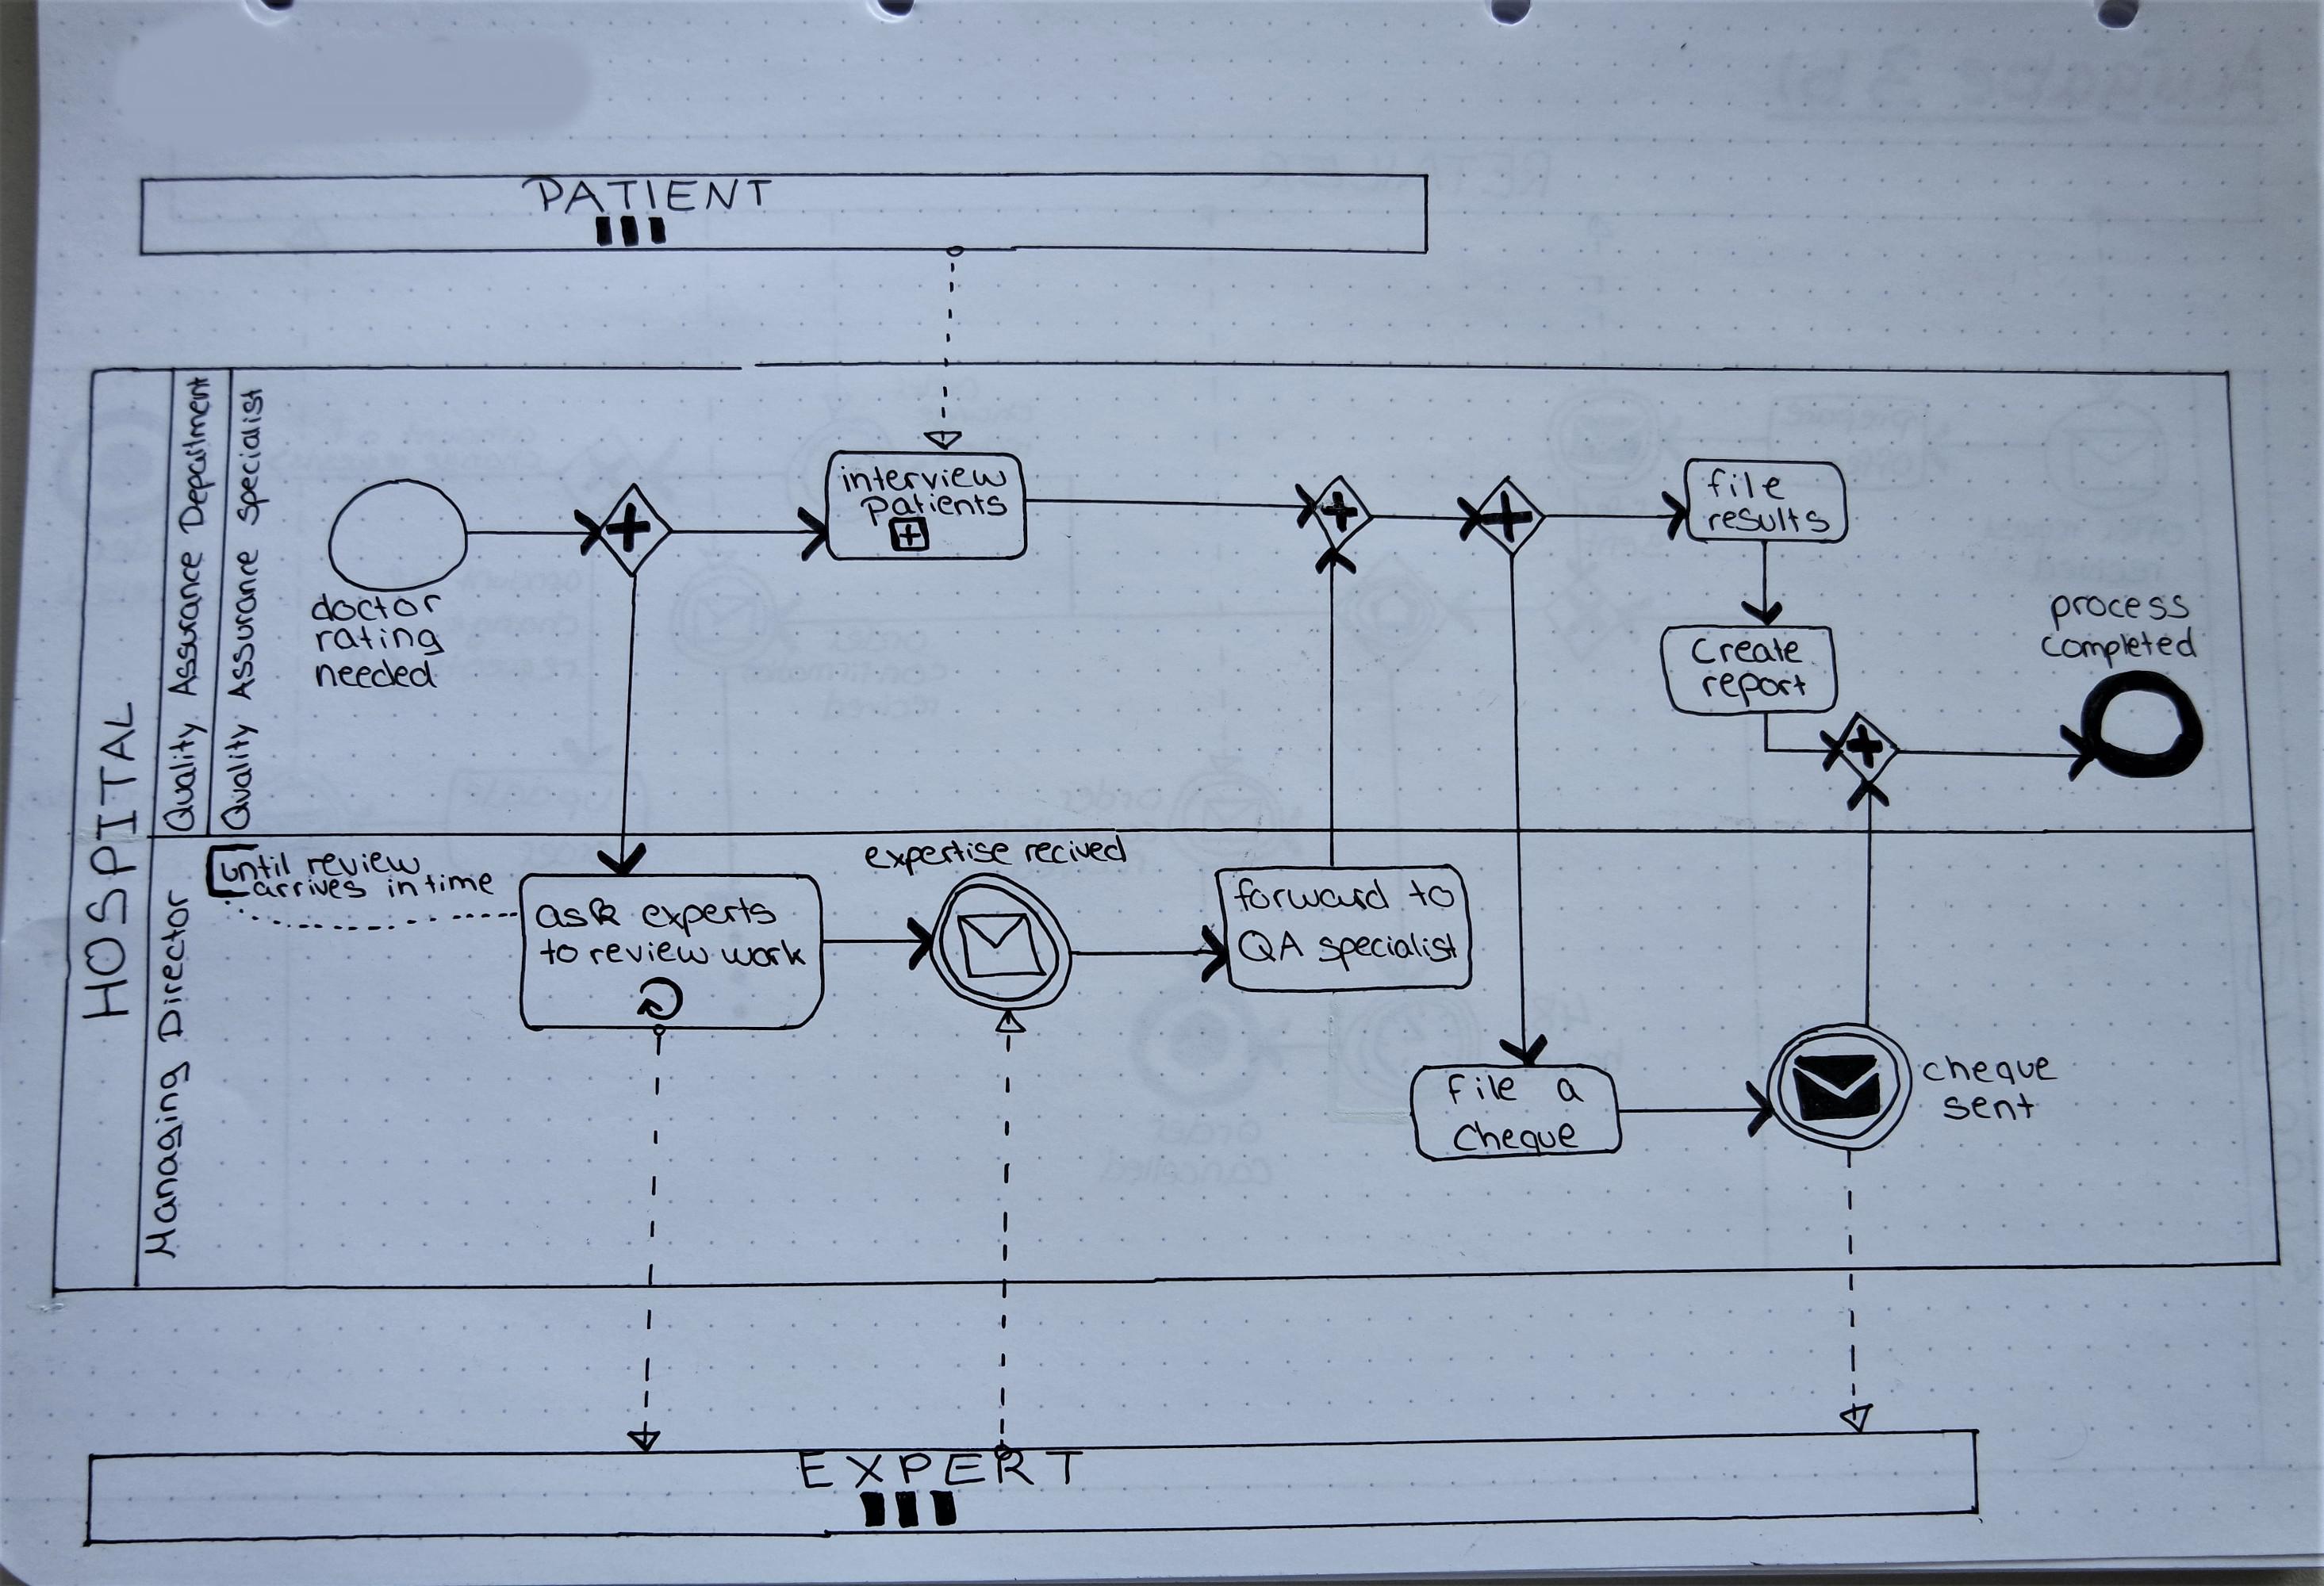 PATIENT
HOSPITAL
Quality Assurance Department
Quality Assurance Specialist
doctor
rating
needed
interview
patients
file
results
Create
report
process
completed
Managing Director
until review
arrives in time
ask experts
to review work
expertise recived
forward to
QA specialist
File a
Cheque
cheque
sent
EXPERT